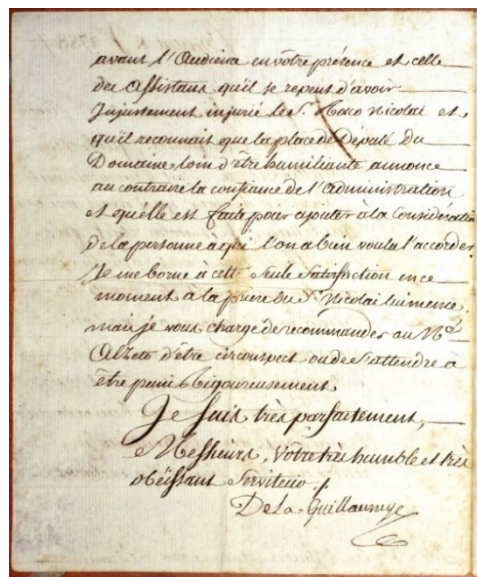 avant l'Audience en vôtre présence et celle
des assistans qu'il se repent d'avoir
Injustement injurié le S.r Nicolai et
qu'il reconnait que la place de Déput.é du
Domaine, loin d'être humiliante annonce
au contraire la confiance de l'administration
et qu'elle est faite pour ajouter à la Considération
de la personne à qui l'on a bien voulu l'accorder.
Je me borne à cette seule satisfaction en ce
moment à la priere du S.r Nicolai lui meme,
mais je vous charge de recommander au
d'être circonspect ou de s'attendre à
être puni Rigoureusement.
Je suis très parfaitement,
Messieurs, Votre très humble et très
obéissant Serviteur ./.
De la Guillaumye